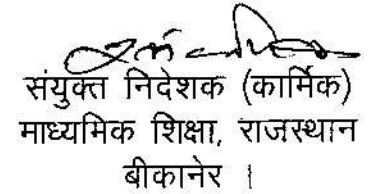 संयुक्त निदेशक (कार्मिक)
माध्यमिक शिक्षा, राजस्थान
बीकानेर ।